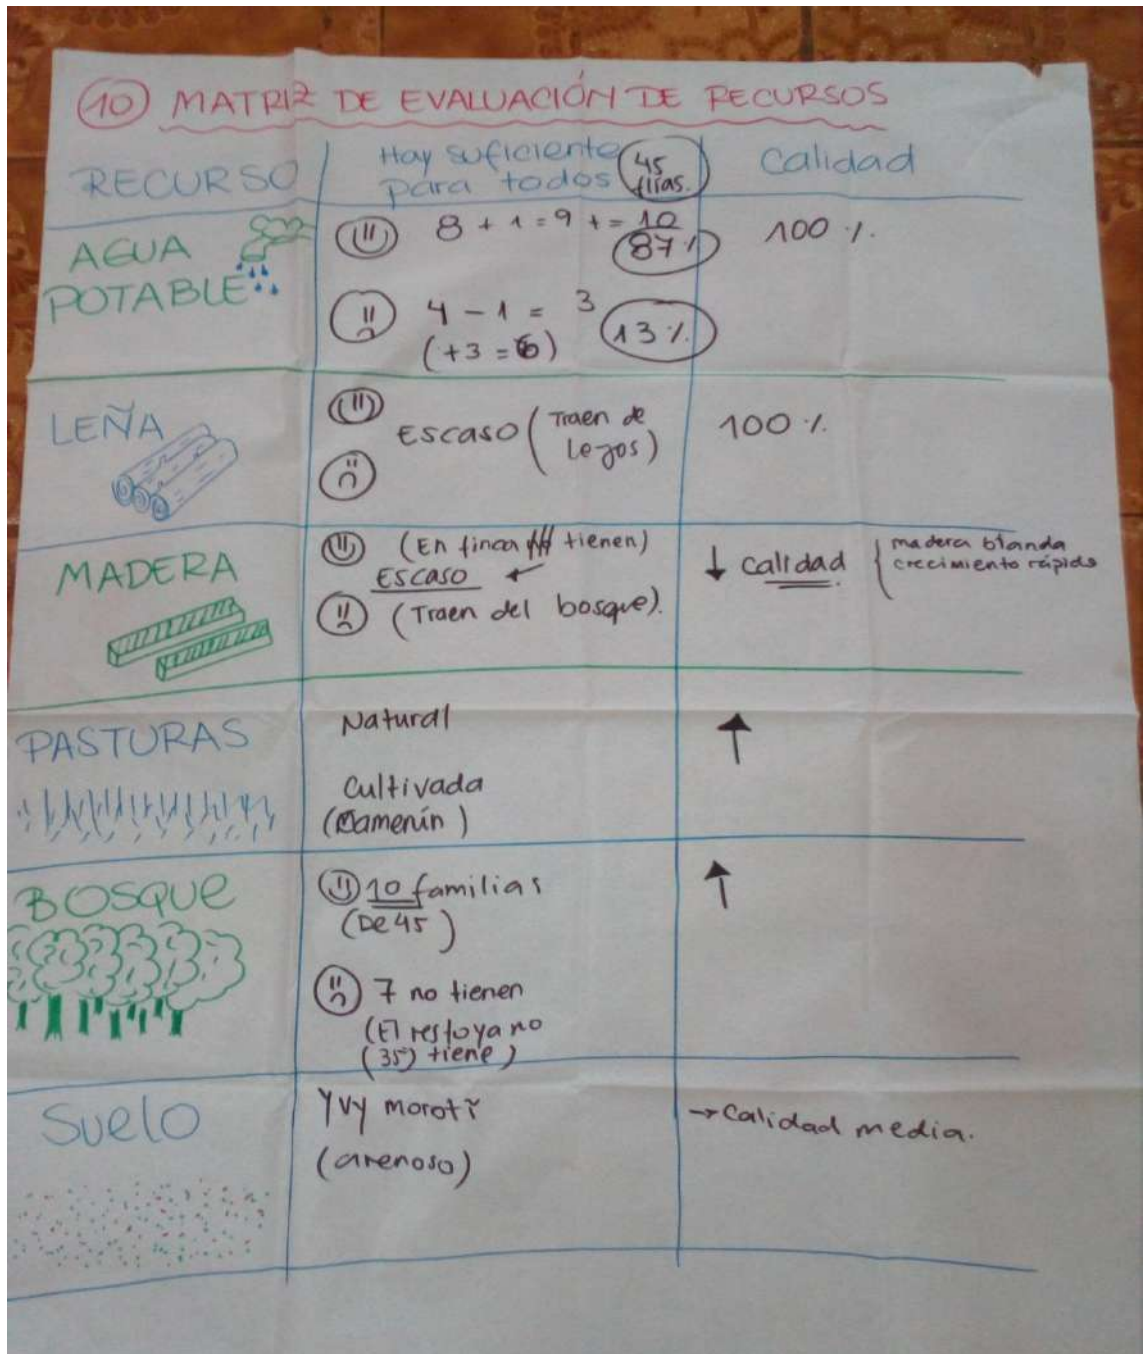 10 MATRIZ DE EVALUACIÓN DE RECURSOS
RECURSO
Hay suficiente
para todos
45
flias.
Calidad
AGUA
POTABLE
8 + 1 = 9 + = 10
87%
4 - 1 = 3
13%
(+3 = 6)
100%
LEÑA
ESCASO (Traen de
Lejos)
100%
MADERA
(En finca tienen)
ESCASO
(Traen del bosque).
↓ Calidad
madera blanda
crecimiento rápido
PASTURAS
Natural
Cultivada
(Camerún)
↑
BOSQUE
10 familias
(De 45)
7 no tienen
(El resto ya no
(35) tiene)
↑
Suelo
Yvy morotĩ
(arenoso)
→ Calidad media.